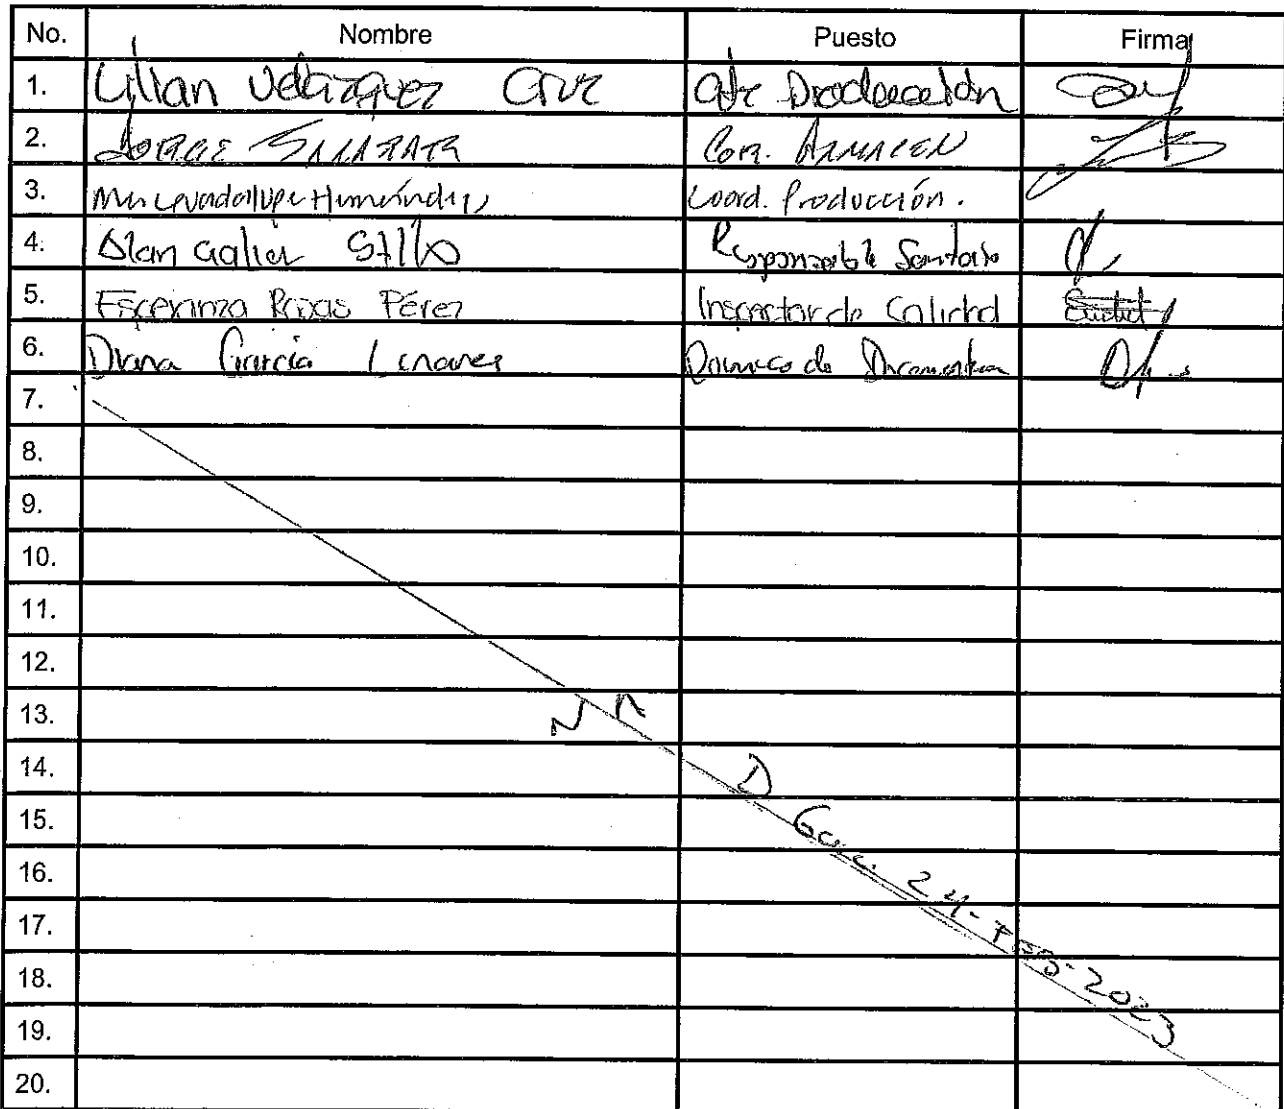 No. Nombre Puesto Firma
1. Lilian Velazquez Cruz Gte Producción
2. JORGE Cor. ALMACEN
3. Ma Guadalupe Hernández Coord. Producción.
4. Alan Responsable Sanitario
5. Esperanza Rojas Pérez Inspector de Calidad
6. Diana García Linares Químico de
7.
8.
9.
10.
11.
12.
13. N A
14. D
15. Garc.
16. 24-FEB-2023
17.
18.
19.
20.